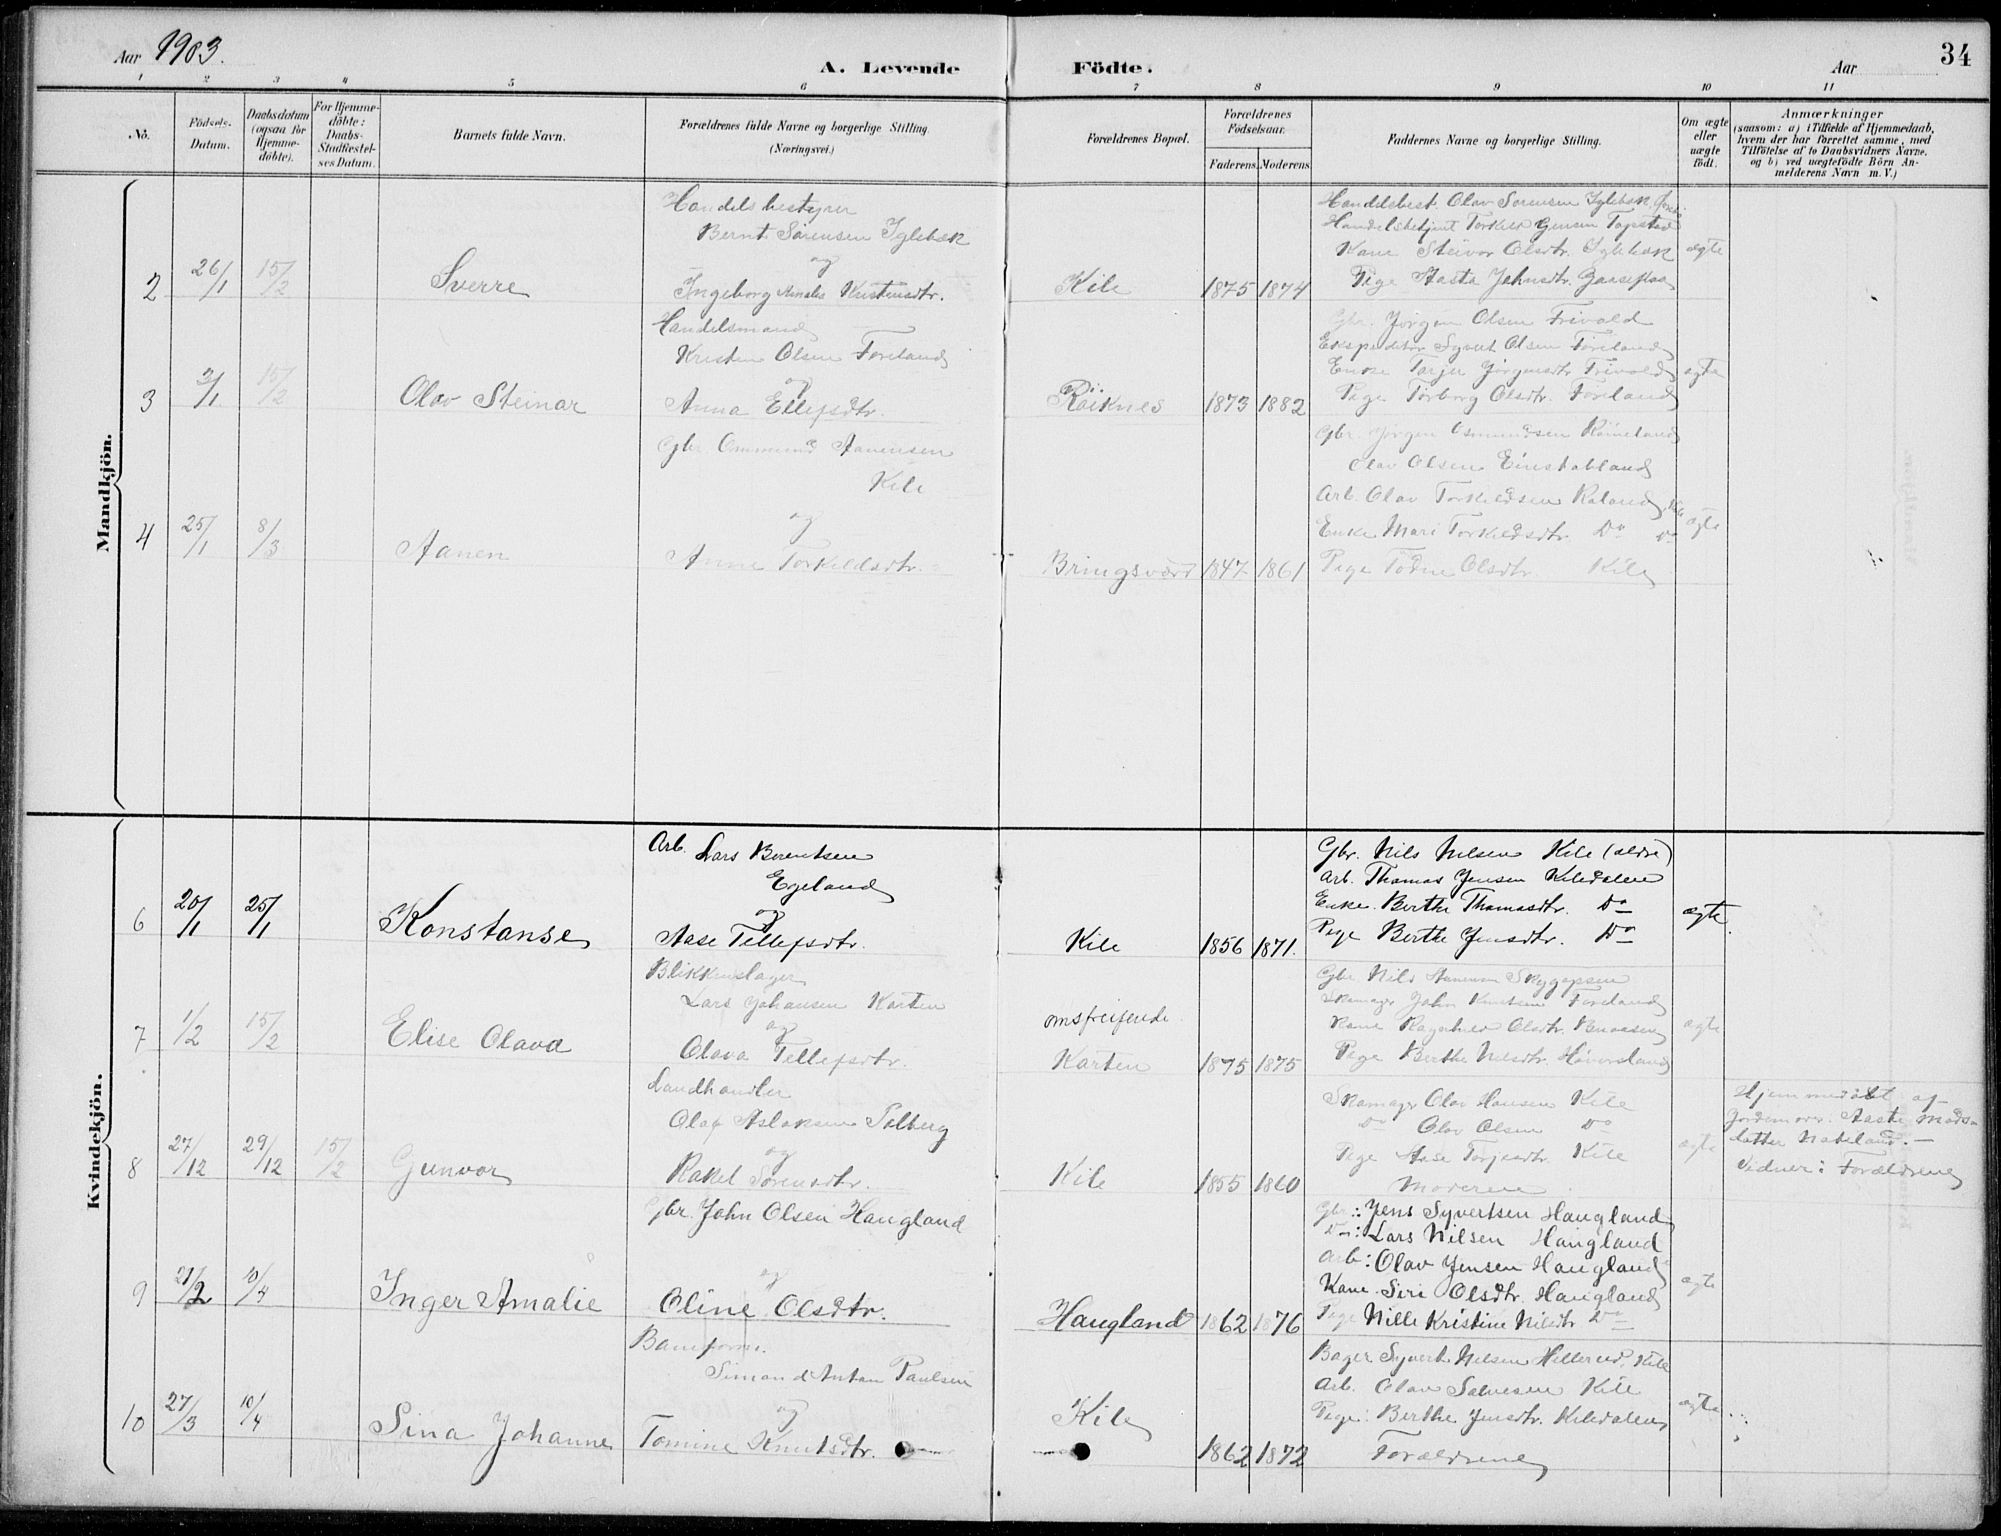 Aar 1903.
A. Levende Födte.
Aar
34
1 2 3 4 5 6 7 8 9 10 11
No.
Födsels-Datum.
Daabsdatum (ogsaa för Hjemme-döbte).
For Hjemme-döbte: Daabs-Stadfæstel-ses Datum.
Barnets fulde Navn.
Forældrenes fulde Navne og borgerlige Stilling. (Næringsvei.)
Forældrenes Bopæl.
Forældrenes Födselsaar.
Faderens. Moderens.
Faddernes Navne og borgerlige Stilling.
Om ægte eller uægte födt.
Anmærkninger
(saasom: a) i Tilfælde af Hjemmedaab,
hvem der har forrettet samme, med
Tilföielse af to Daabsvidners Navne,
og b) ved uægtefödte Börn An-
melderens Navn m. V.)
Mandkjön.
2 26/1 15/2 Sverre
Handelsbestyrer
Bernt Sörensen Iglebæk
og
Ingeborg Amalie Kristensdtr.
Kile 1875 1874
Handelsbest. Olav Sörensen Iglebæk
Handelsbetjent Torkild Jensen Topstad
Kone Steivor Olsdtr. Iglebæk
Pige Aasta Johnsdtr. Gaaseflaa
ægte
3 2/1 15/2 Olav Steinar
Handelsmand
Kristen Olsen Foreland
og
Anna Ellefsdtr.
Röiknes 1873 1882
Gbr. Jörgen Olsen Frivold
Ekspeditör Syvert Olsen Foreland
Enke Tarjer Jörgensdtr. Frivold
Pige Torborg Olsdtr. Foreland
ægte
4 25/1 8/3 Aanen
Gbr Ommund Aanensen
Kile
og
Anne Torkildsdtr.
Bringsværd 1847 1861
Gbr. Jörgen Osmundsen Röineland
Olav Olsen Einstabland
Arb. Olav Torkildsen Raland, Kile
Enke Mari Torkildsdtr. Do Do
Pige Tödne Olsdtr. Kile
ægte
Kvindekjön.
6 20/1 25/1 Konstanse
Arb. Lars Berentsen
Egeland
og
Aase Tellefsdtr.
Kile 1856 1871.
Gbr. Nils Nilsen Kile (ældre)
Arb. Thomas Jensen Kiledalen
Enke. Berthe Thomasdtr. Do
Pige Berthe Jensdtr. Do
ægte.
7 1/2 15/2 Elise Olava
Blikkenslager
Lars Johansen Karten
og
Olava Tellefsdtr.
omstreifende
Karten 1875 1875
Gbr Nils Aanensen
Skomager John Knutsen Foreland
Kone Ragnhild Olsdtr.
Pige Berthe Nilsdtr. Höversland
ægte
8 27/12 29/12 15/2 Gunvor
Landhandler
Olaf Aslaksen Solberg
og
Rakel Sörensdtr.
Kile 1855 1860
Skomager Olav Hansen Kile
Do Olav Olsen Do
Pige Aase Torjesdtr. Kile
Moderen
ægte
Hjemmedöbt af
Jordemor. Aaste Mads-
datter Nabeland. —
Vidner: Forældrene
9 21/2 10/4 Inger Amalie
Gbr. John Olsen Haugland
og
Oline Olsdtr.
Haugland 1862 1876
Gbr: Jens Syvertsen Haugland
Do: Lars Nilsen Haugland
Arb: Olav Jensen Haugland
Kone. Siri Olsdtr. Haugland
Pige Nille Kristine Nilsdtr Do
ægte
10 27/3 10/4 Sina Johanne
Baneform.
Simon d Anton Paulsen
og
Tomine Knutsdtr.
Kile
1862 1872
Bager Syvert Nilsen Hillerud, Kile
Arb. Olav Salvesen Kile
Pige: Berthe Jensdtr. Kiledalen
Forældrene
ægte